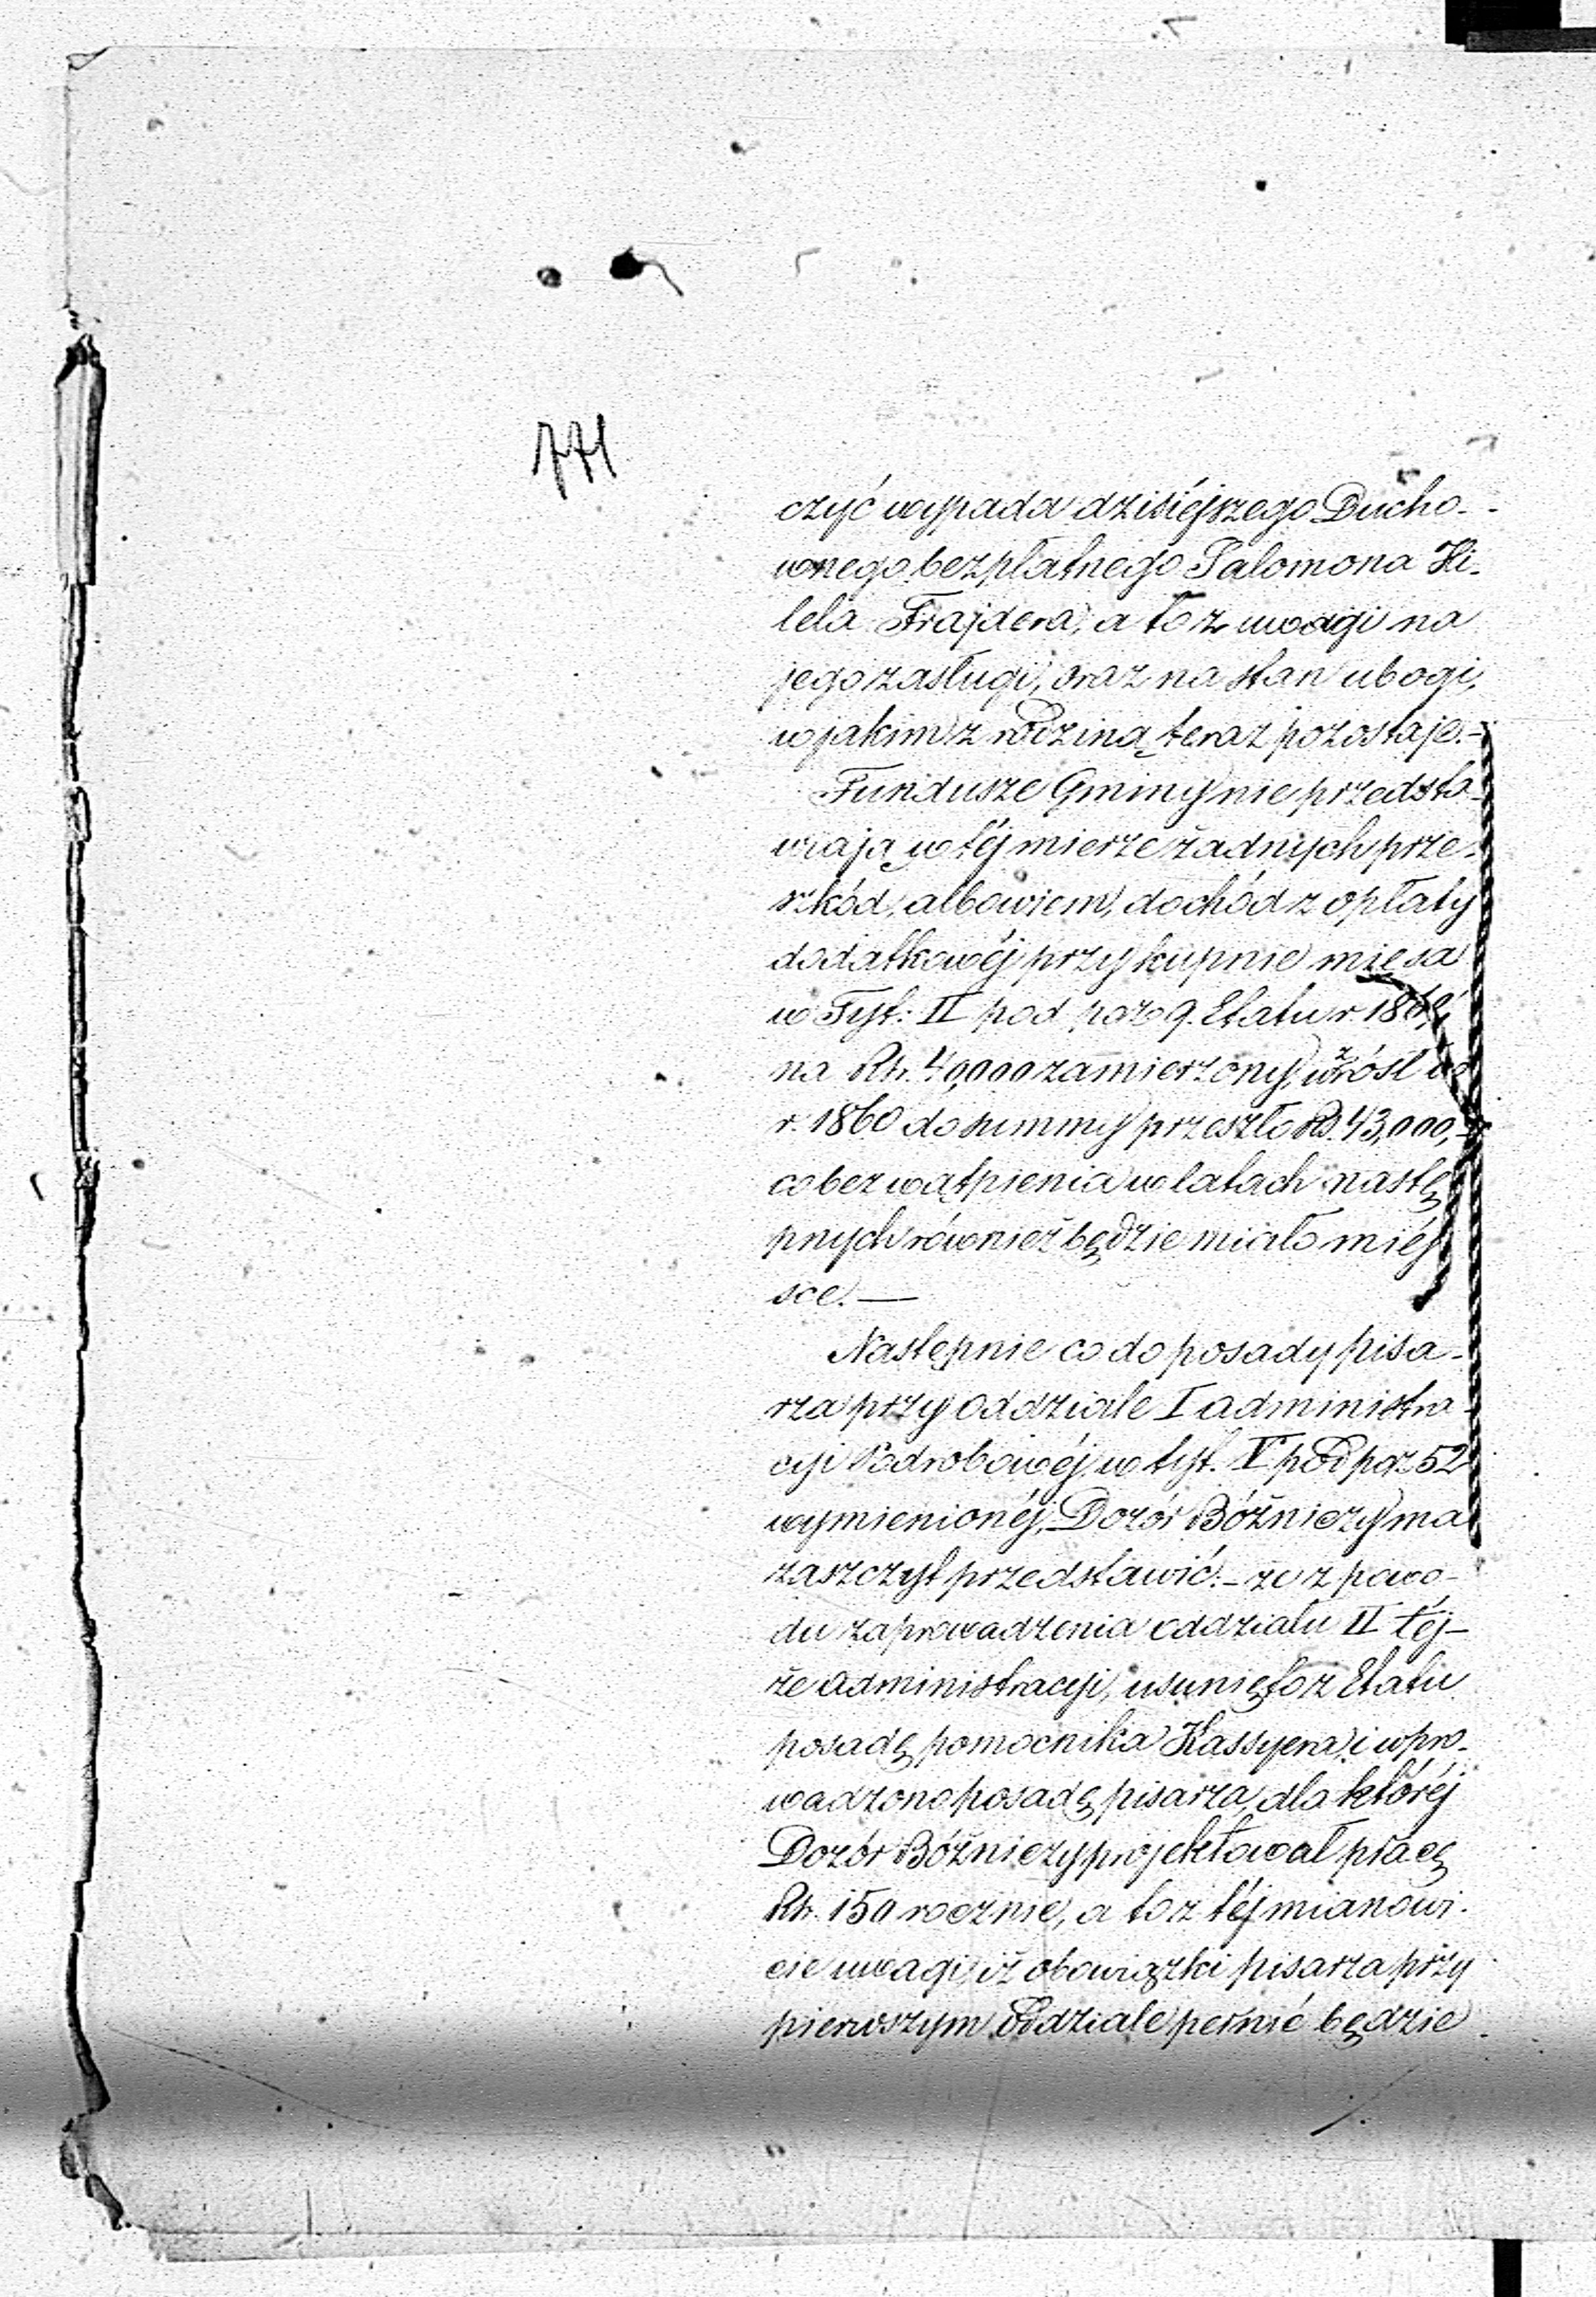 771
czyć wypada dzisiéjszego Ducho-
wnego bezpłatnego Salomona Hi-
lela Frajdera, a to z uwagi na
jego zasługi, oraz na stan ubogi,
w jakim z rodziną teraz pozostaje.-
Fundusze Gminy nie przedsta-
wiają w téj mierze żadnych prze-
szkód, albowiem, dochód z opłaty
dodatkowéj przy kupnie mięsa
w Tyt: II pod poz 9. Etatu r.
na Rs. 40,000 zamierzony, wzrósł
r. 1860 do summy przeszło Rs. 43,000,
co bez wątpienia w latach nastę
pnych również będzie miało miéj
sce.—
Następnie co do posady pisa-
rza przy oddziale I administra-
cyi w tyt. V pod poz 52
wymienionéj, Dozór Bóżniczy ma
zaszczyt przedstawić:- że z powo-
du zaprowadzenia oddziału II téj-
że administracyi, usunięto z Etatu
posadę pomocnika Kassyera i wpro-
wadzono posadę pisarza, dla któréj
Dozór Bóżniczy projektował płacę
Rs. 150 rocznie, a to z téj mianowi-
cie uwagi, iż obowiązki pisarza przy
pierwszym Oddziale pełnić będzie